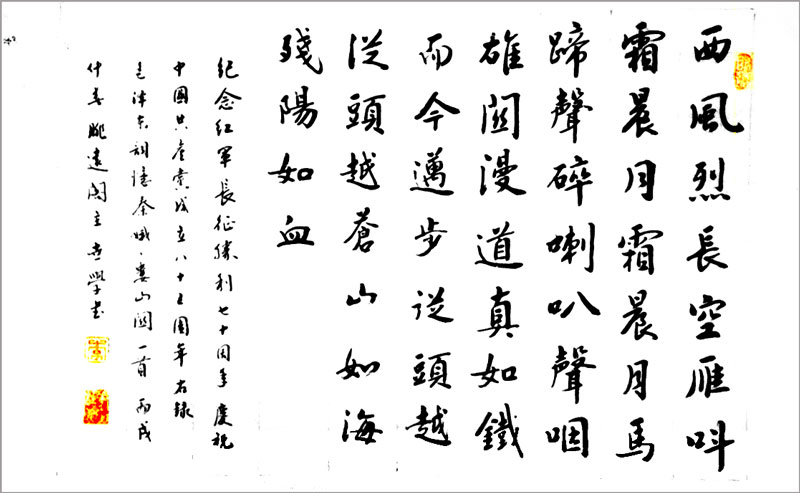 西風烈長空雁叫
霜晨月霜晨月馬
蹄聲碎喇叭聲咽
雄關漫道真如鐵
而今邁步從頭越
從頭越蒼山如海
殘陽如血
紀念紅軍長征勝利七十周年慶祝
中國共產黨成立八十五周年右錄
毛澤東詞憶秦娥·婁山關一首丙戌
仲春眺遠閣主 學書